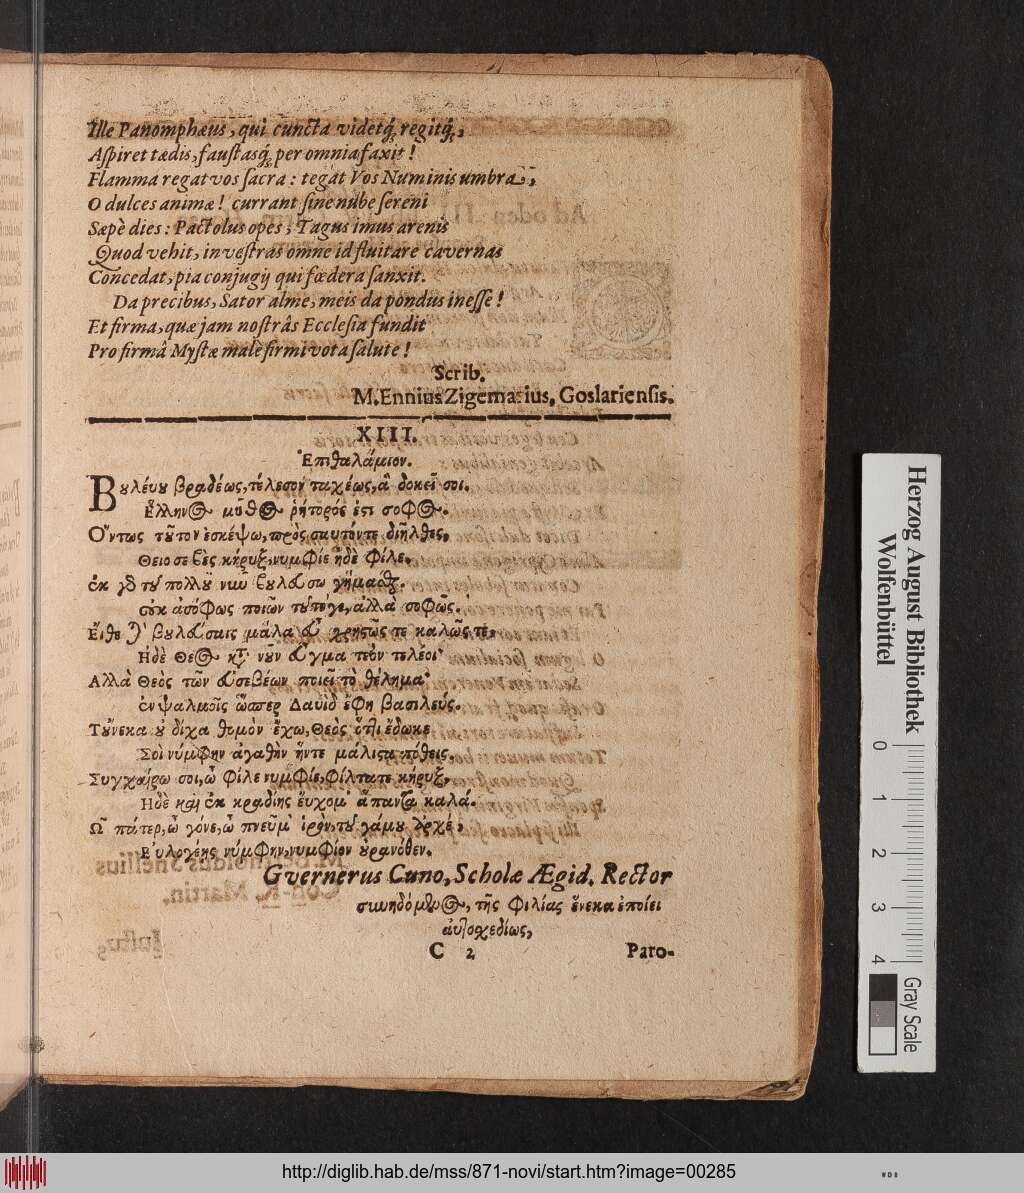 Ille Panomphæus, qui cuncta videtq́; regitq́;,
Aspiret tædis, faustasq́; per omnia faxit!
Flamma regat vos sacra: tegat Vos Numinis umbra,
O dulces animæ! currant sine nube sereni
Sæpè dies: Pactolus opes, Tagus imus arenis
Quod vehit, in vestras omne id fluitare cavernas
Concedat, pia conjugij qui fœdera sanxit.
Da precibus, Sator alme, meis da pondus inesse!
Et firma, quæ jam nostrâs Ecclesia fundit
Pro firmâ Mystæ malè firmi vota salute!
Scrib.
M. Ennius Zigemarius, Goslariensis.
XIII.
Ἐπιθαλάμιον.
Βουλεύου βραδέως, τέλεσον ταχέως, ἃ δοκεῖ σοι.
Ἕλληνος μῦθος ῥήτορός ἐστι σοφός.
Ὄντως τοῦτον ἐσκέψω, πρὸς σαυτόν τε διῆλθες,
Θειοσεβὲς κήρυξ, νυμφίε ἠδὲ φίλε.
ἐκ γὰρ τοῦ πολλοῦ νῦν βουλεύσω γήμασθαι.
οὐκ ἀσόφως ποιῶν τοῦτόγε, ἀλλὰ σοφῶς.
Εἴθε δ' βουλεύσαις μάλα εὖ χρηστῶς τε καλῶς τε,
Ηδὲ Θεὸς καὶ νῦν εὖγμα τεὸν τελέοι·
Αλλὰ Θεὸς τῶν εὐσεβέων ποιεῖ τὸ θέλημα·
ἐν ψαλμοῖς ὥσπερ Δαυὶδ ἔφη βασιλεύς.
Τοὔνεκα οὐ δίχα θυμὸν ἔχω, Θεὸς ὅττι ἔδωκε
Σοὶ νύμφην ἀγαθὴν ἥντε μάλιστα πόθεις.
Συγχαίρω σοι, ὦ φίλε νυμφίε, φίλτατε κήρυξ,
Ηδὲ καὶ ἐκ κραδίης ἔυχομ' ἅπαντα καλά.
Ω πάτερ, ὦ γόνε, ὦ πνεῦμ' ἱρὸν, τοῦ γάμου ἀρχέ,
Ευλογέης νύμφην, νυμφίον οὐρανόθεν.
Gvernerus Cuno, Scholæ Ægid. Rector
συνηδόμενος, τῆς φιλίας ἕνεκα ἐποίει
αὐτοσχεδίως,
C 2
Paro-
Herzog August Bibliothek
Wolfenbüttel
0 1 2 3 4
Gray Scale
http://diglib.hab.de/mss/871-novi/start.htm?image=00285